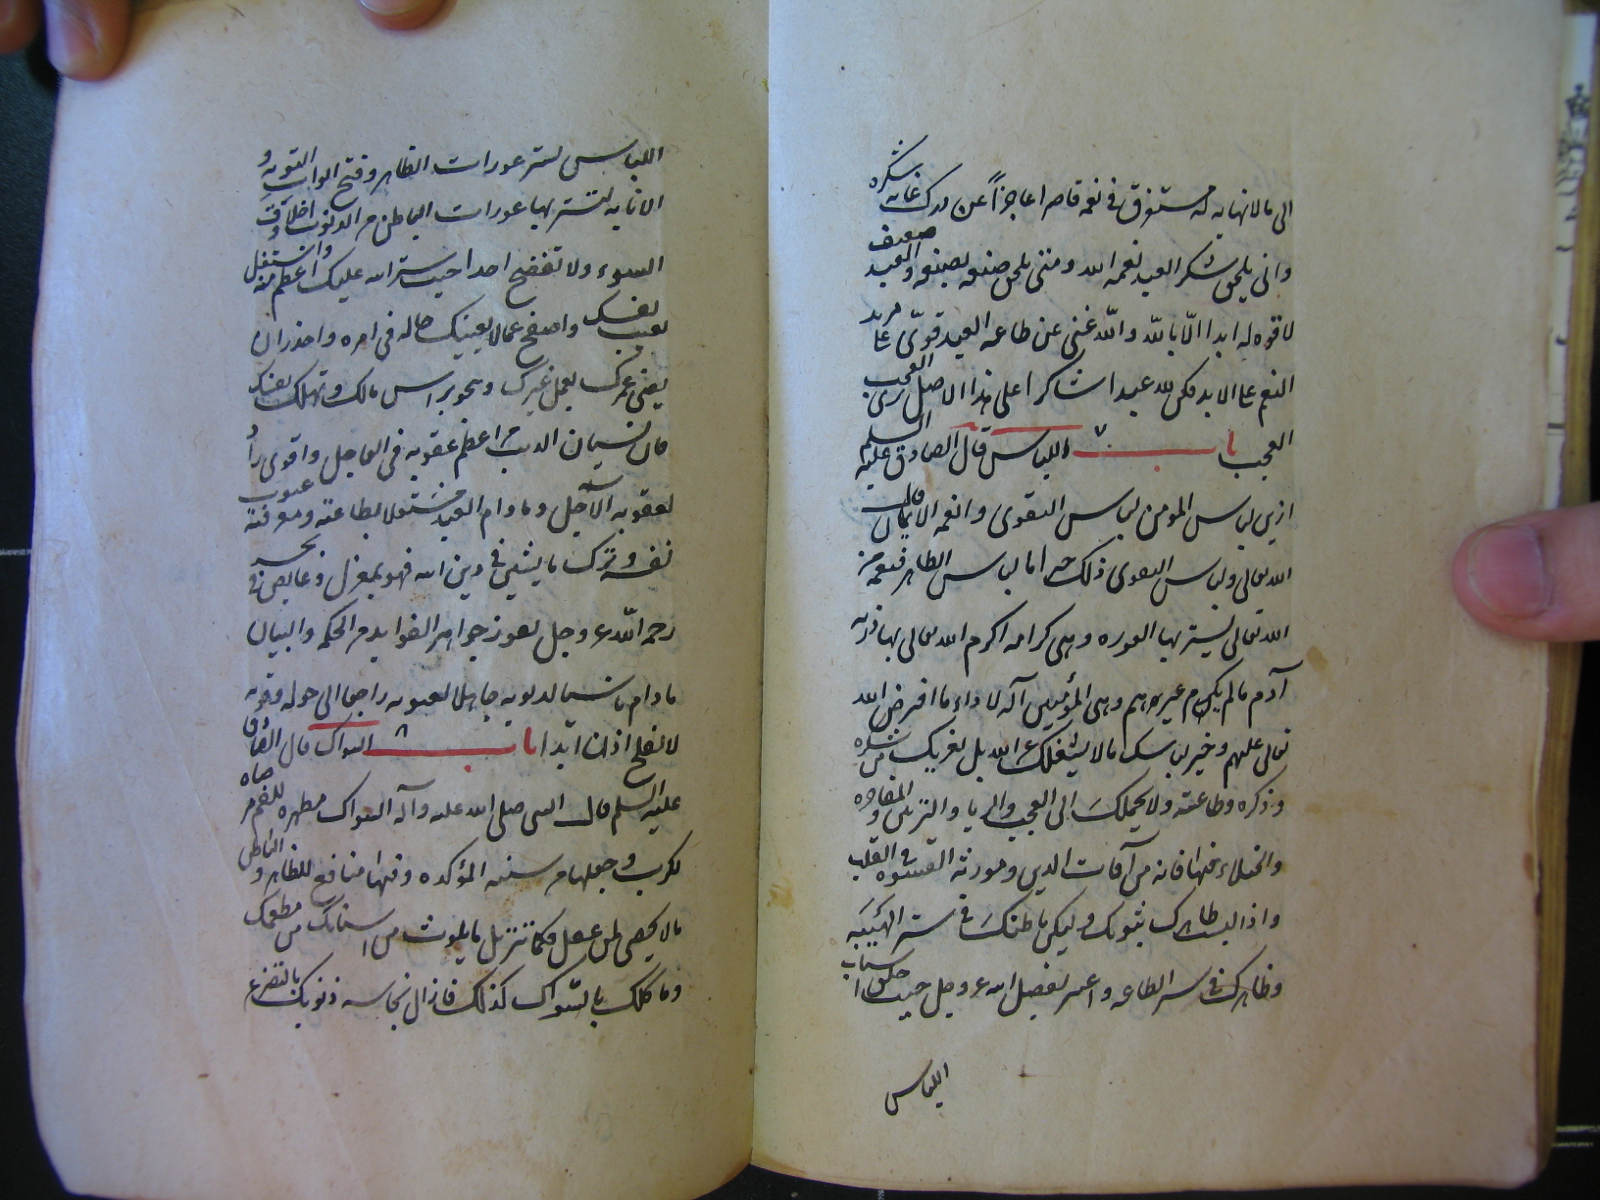 الى ما لا نهاية له مستغرق فى نعمه قاصرا عاجزاً عن درك غاية شكره
وانى يلحق شكر العبد نعمة الله ومتى يلحق صنعه بصنعه والعبد ضعيف
لا قوه له ابدا الّا بالله والله غنى عن طاعه العبد قوىّ على مزيد
النعم على الابد فكن لله عبدا شاكرا على هذا الاصل ترى العجب
العجب باب ٧ اللباس قال الصادق عليه السلم
ازين لباس المومن لباس التقوى وانعمه الايمان قال
الله تعالى ولباس التقوى ذلك خير اما لباس الظاهر فنعمه من
الله تعالى يستر بها العوره وهى كرامه اكرم الله تعالى بها ذريه
آدم ما لم يكرم غيرهم وهى للمؤمنين آله لاداء ما افترض الله
تعالى عليهم وخير لباسك ما لا يشغلك عن الله بل يقربك من شكره
وذكره وطاعته ولا يحملك الى العجب والريا والتزين والمفاخره
والخيلاء فانها من آفات الدين ومورثه القسوه فى القلب
واذا لبست ثوبك
وظاهرك فى ستر الطاعه واعتبر بفضل الله عز وجل حيث خلق اسباب
اللباس
اللباس لستر عورات الظاهر وفتح ابواب التوبه و
الانابه لتستر بها عورات الباطن من الذنوب واخلاق
السوء ولا تفضح احدا حيث ستر الله عليك اعظم منه واشتغل
بعيب نفسك واصفح عما لا يعينك حاله فى امره واحذر ان
يفنى عمرك بعمل غيرك ويتجر براس مالك وتهلك نفسك
فان نسيان الذنب من اعظم عقوبه فى العاجل واقوى
لعقوبه الآجل وما دام العبد مشتغلا بطاعته ومعرفته عيوب
نفسه وترك ما يشين فى دين الله فهو بمعزل وغايص فى بحر
رحمه الله عز وجل يفوز جواهر الفوايد من الحكمه والبيان
ما دام ناسيا لذنوبه جاهلا لعيوبه راجعا الى حوله وقوته
لا يفلح اذن ابدا باب ٨ السواك قال الصادق
عليه السلم قال النبى صلى الله عليه وآله السواك مطهره للفم مرضاه
للرب وجعلها من سنته المؤكده وفيها منافع للظاهر والباطن
ما لا يحصى لمن عقل فكما تزيل ما يلوث من اسنانك من مطعمك
وماكلك بالسّواك كذلك فازل نجاسه ذنوبك بالتضرع